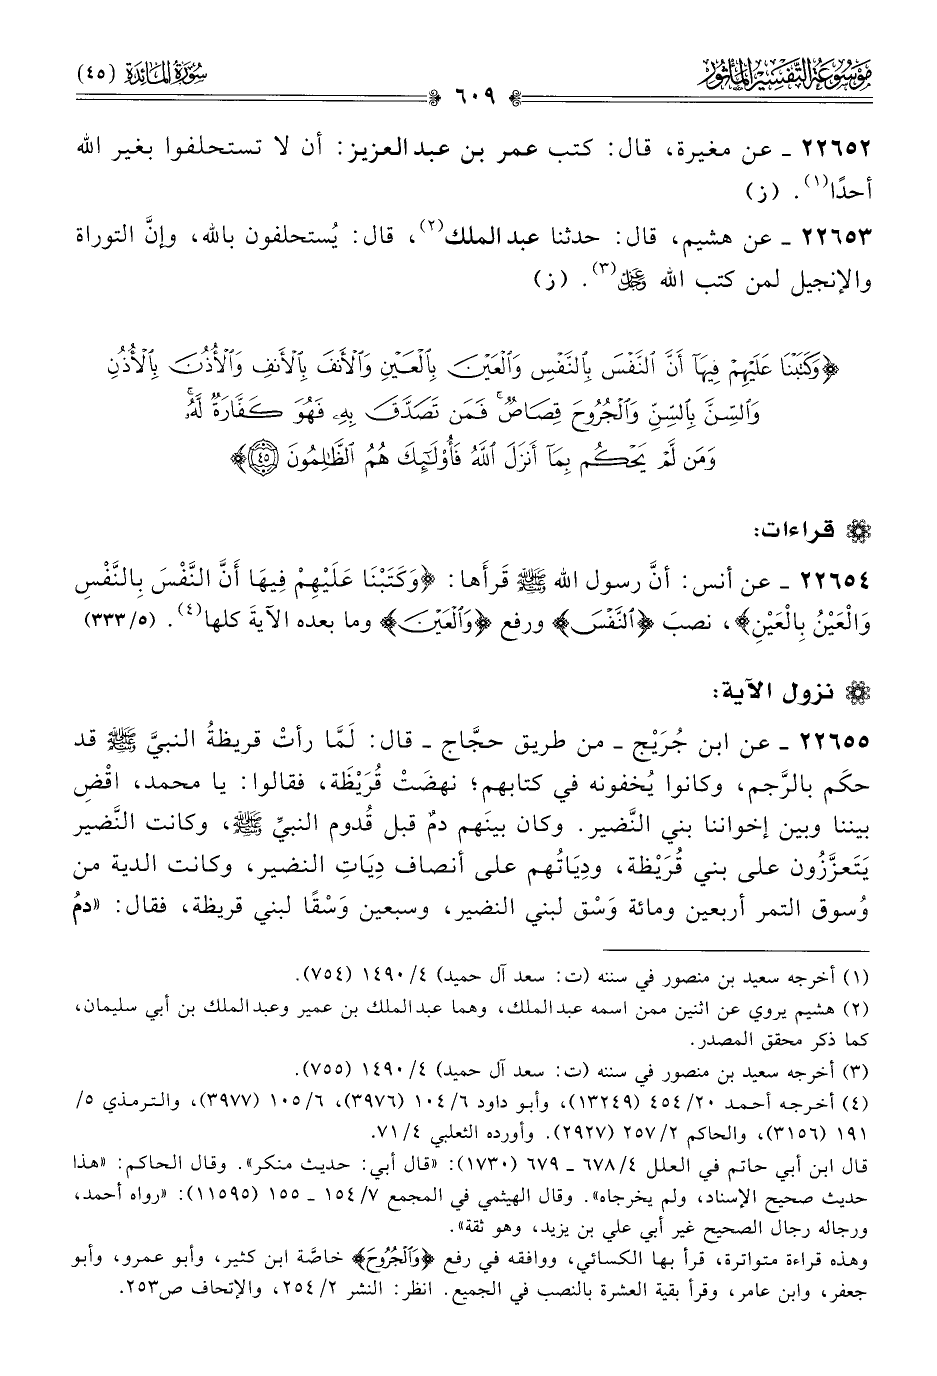 مَوْسُوعَةُ التَّفْسِيرِ المَأْثُور
٦٠٩
سُورَةُ المَائِدَة (٤٥)
٢٢٦٥٢ ـ عن مغيرة، قال: كتب عمر بن عبد العزيز: أن لا تستحلفوا بغير الله
أحدًا(١). (ز)
٢٢٦٥٣ ـ عن هشيم، قال: حدثنا عبد الملك(٢)، قال: يُستحلفون بالله، وإنَّ التوراة
والإنجيل لمن كتب الله عز وجل(٣). (ز)
﴿وَكَتَبْنَا عَلَيْهِمْ فِيهَآ أَنَّ ٱلنَّفْسَ بِٱلنَّفْسِ وَٱلْعَيْنَ بِٱلْعَيْنِ وَٱلْأَنفَ بِٱلْأَنفِ وَٱلْأُذُنَ بِٱلْأُذُنِ
وَٱلسِّنَّ بِٱلسِّنِّ وَٱلْجُرُوحَ قِصَاصٌ ۚ فَمَن تَصَدَّقَ بِهِۦ فَهُوَ كَفَّارَةٌ لَّهُۥ ۚ
وَمَن لَّمْ يَحْكُم بِمَآ أَنزَلَ ٱللَّهُ فَأُو۟لَٰٓئِكَ هُمُ ٱلظَّٰلِمُونَ ٤٥﴾
قراءات:
٢٢٦٥٤ ـ عن أنس: أنَّ رسول الله ﷺ قَرأَها: ﴿وَكَتَبْنَا عَلَيْهِمْ فِيهَا أَنَّ النَّفْسَ بِالنَّفْسِ
وَالْعَيْنُ بِالْعَيْنِ﴾، نصبَ ﴿ٱلنَّفْسَ﴾ ورفع ﴿وَٱلْعَيْنَ﴾ وما بعده الآيةَ كلها(٤). (٥/٣٣٣)
نزول الآية:
٢٢٦٥٥ ـ عن ابن جُرَيْج ـ من طريق حجَّاج ـ قال: لَمَّا رأتْ قريظةُ النبيَّ ﷺ قد
حكَم بالرَّجم، وكانوا يُخفونه في كتابهم؛ نهضَتْ قُرَيْظَة، فقالوا: يا محمد، اقْضِ
بيننا وبين إخواننا بني النَّضير. وكان بينَهم دمٌ قبل قُدوم النبيِّ ﷺ، وكانت النَّضير
يَتَعزَّزُون على بني قُرَيْظة، ودِيَاتُهم على أنصاف دِيَاتِ النضير، وكانت الدية من
وُسوق التمر أربعين ومائة وَسْق لبني النضير، وسبعين وَسْقًا لبني قريظة، فقال: «دمُ
(١) أخرجه سعيد بن منصور في سننه (ت: سعد آل حميد) ٤/ ١٤٩٠ (٧٥٤).
(٢) هشيم يروي عن اثنين ممن اسمه عبد الملك، وهما عبد الملك بن عمير وعبد الملك بن أبي سليمان،
كما ذكر محقق المصدر.
(٣) أخرجه سعيد بن منصور في سننه (ت: سعد آل حميد) ٤/ ١٤٩٠ (٧٥٥).
(٤) أخرجه أحمد ٢٠/ ٤٥٤ (١٣٢٤٩)، وأبو داود ٦/ ١٠٤ (٣٩٧٦)، ٦/ ١٠٥ (٣٩٧٧)، والترمذي ٥/
١٩١ (٣١٥٦)، والحاكم ٢/ ٢٥٧ (٢٩٢٧). وأورده الثعلبي ٤/ ٧١.
قال ابن أبي حاتم في العلل ٤/ ٦٧٨ ـ ٦٧٩ (١٧٣٠): «قال أبي: حديث منكر». وقال الحاكم: «هذا
حديث صحيح الإسناد، ولم يخرجاه». وقال الهيثمي في المجمع ٧/ ١٥٤ ـ ١٥٥ (١١٥٩٥): «رواه أحمد،
ورجاله رجال الصحيح غير أبي علي بن يزيد، وهو ثقة».
وهذه قراءة متواترة، قرأ بها الكسائي، ووافقه في رفع ﴿وَٱلْجُرُوحَ﴾ خاصَّة ابن كثير، وأبو عمرو، وأبو
جعفر، وابن عامر، وقرأ بقية العشرة بالنصب في الجميع. انظر: النشر ٢/ ٢٥٤، والإتحاف ص٢٥٣.